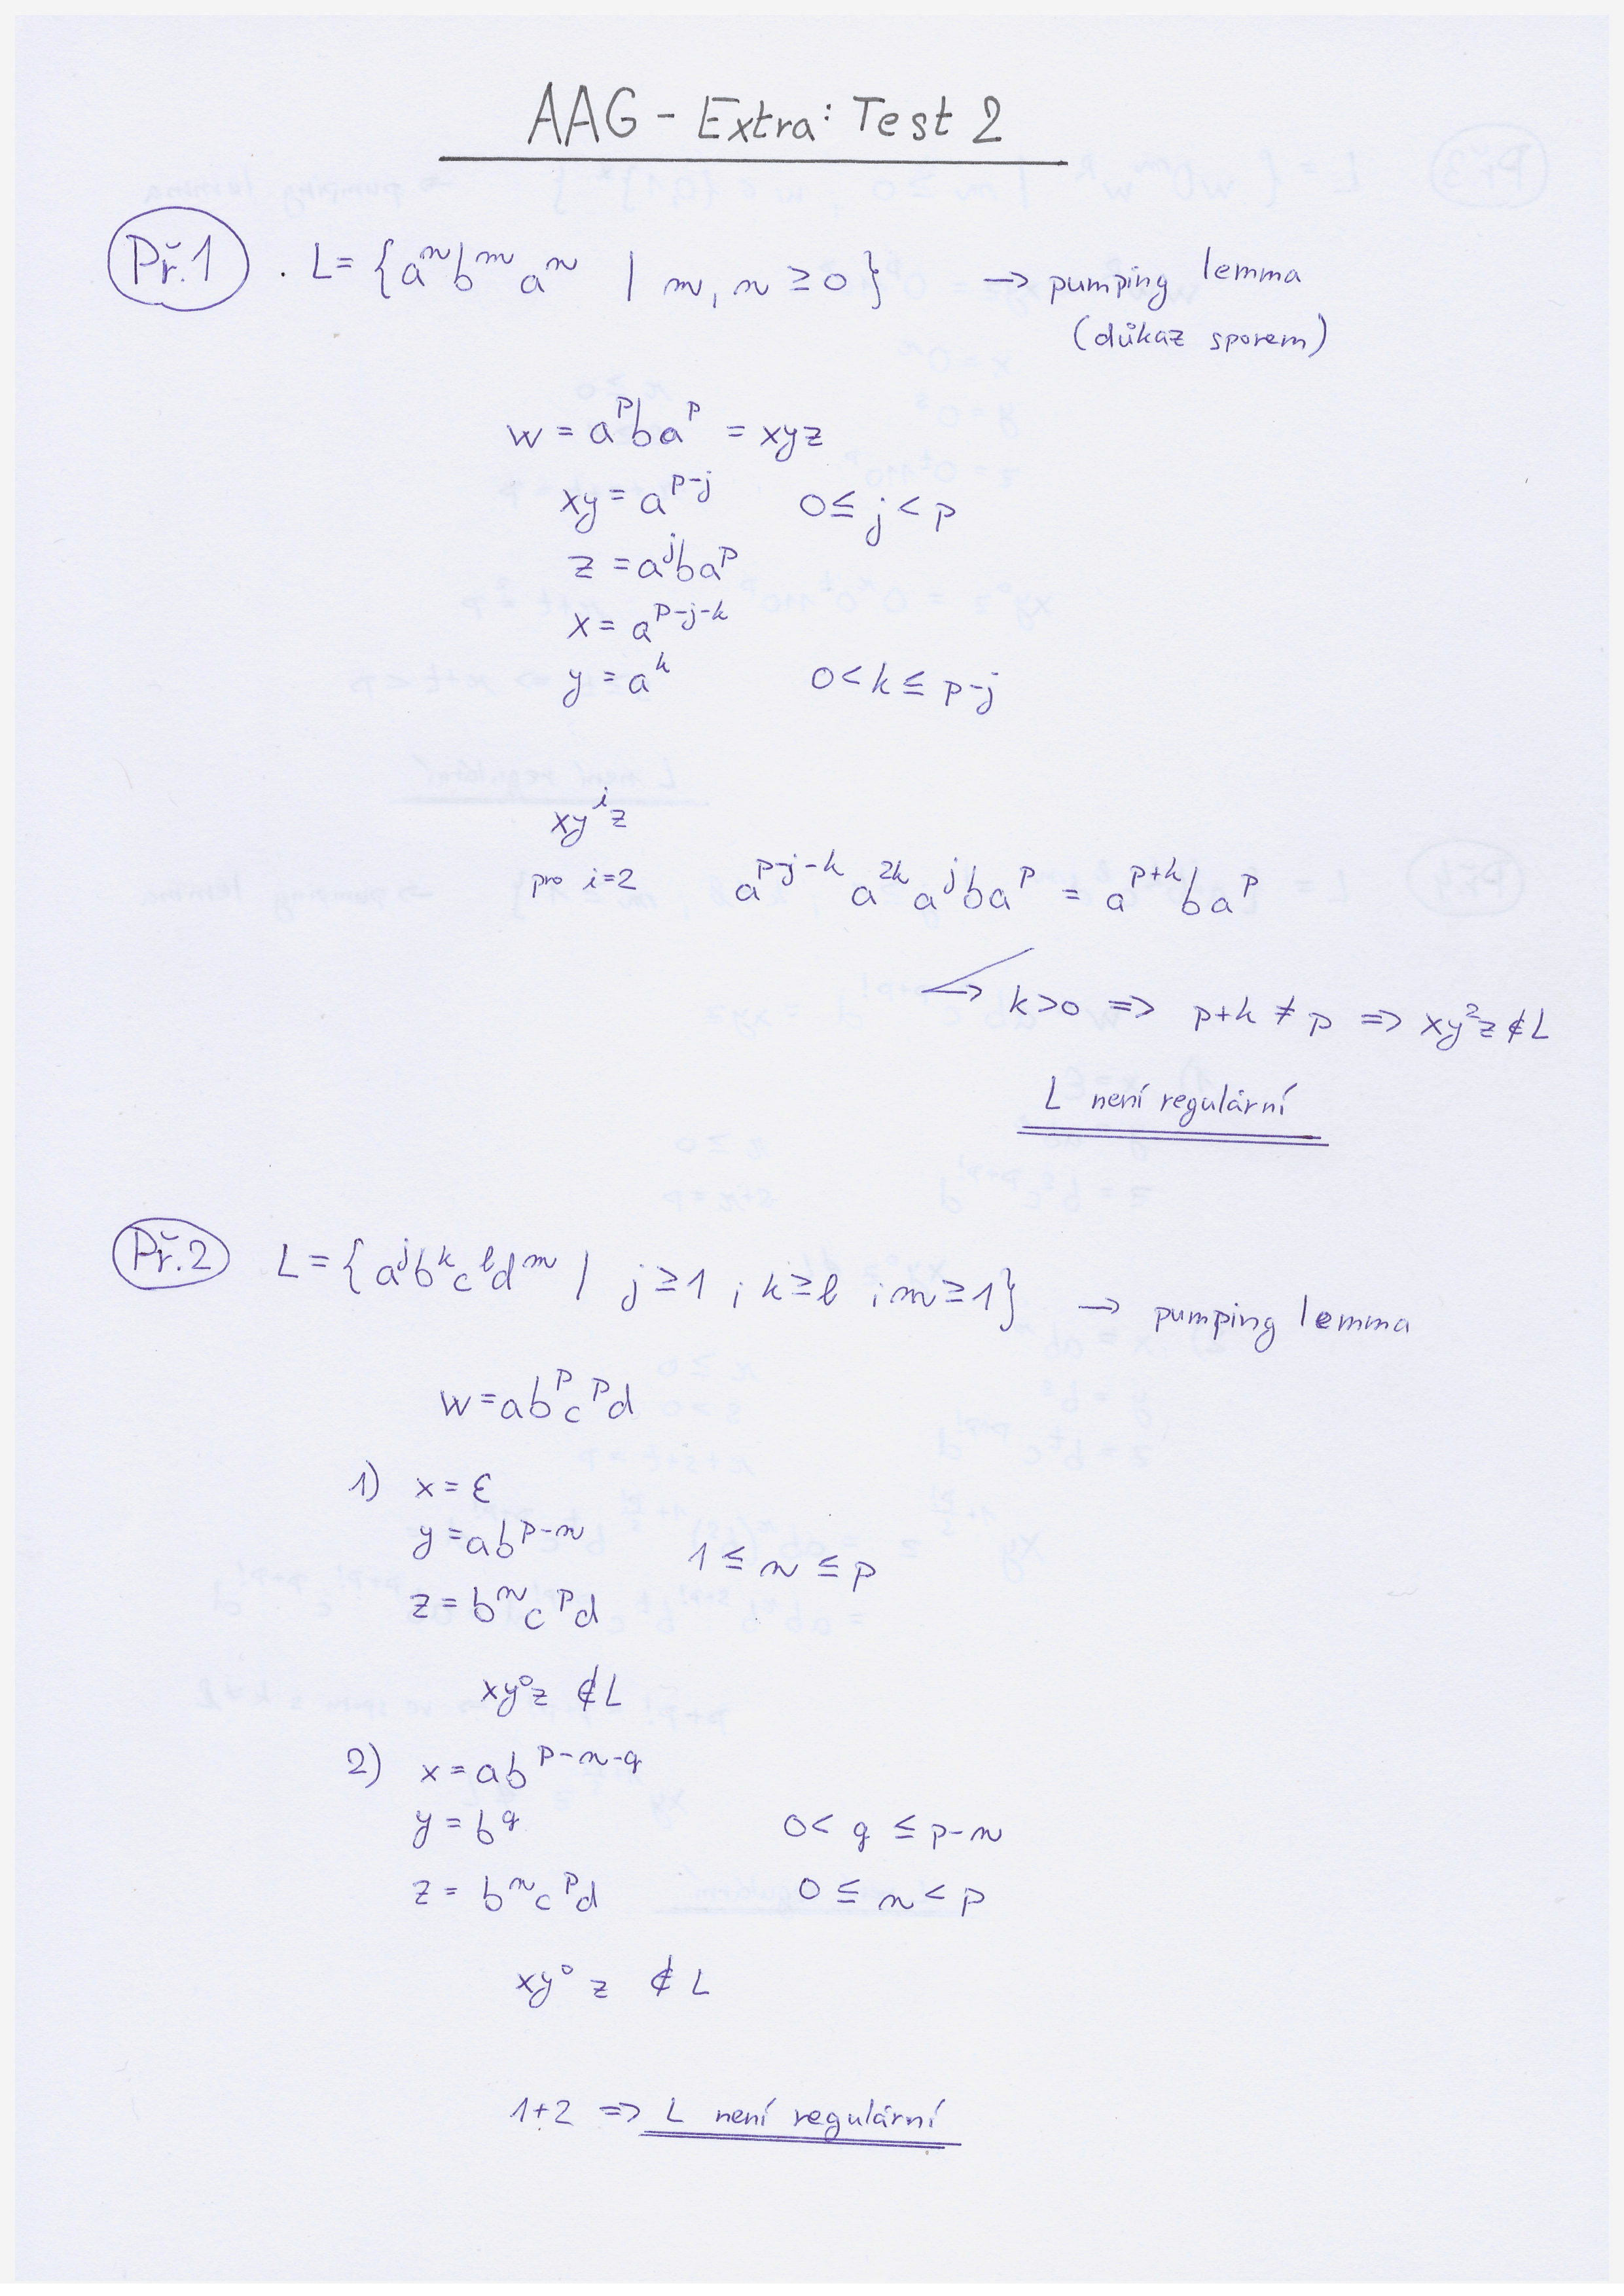 AAG - Extra: Test 2
Př.1 . L = {aⁿbᵐaⁿ | m, n ≥ 0} → pumping lemma
(důkaz sporem)
w = a^p b a^p = xyz
xy = a^(p-j) 0 ≤ j < p
z = a^j b a^p
x = a^(p-j-k)
y = a^k 0 < k ≤ p-j
xy^i z
pro i=2 a^(p-j-k) a^(2k) a^j b a^p = a^(p+k) b a^p
→ k>0 => p+k ≠ p => xy²z ∉ L
L není regulární
Př.2 L = {a^j b^k c^l d^m | j ≥ 1 ; k ≥ l ; m ≥ 1} → pumping lemma
w = ab^p c^p d
1) x = ε
y = ab^(p-n) 1 ≤ n ≤ p
z = b^n c^p d
xy⁰z ∉ L
2) x = ab^(p-n-q)
y = b^q 0 < q ≤ p-n
z = b^n c^p d 0 ≤ n < p
xy⁰z ∉ L
1+2 => L není regulární